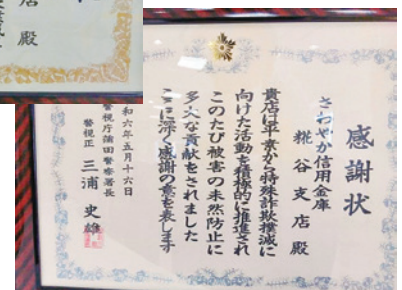 感謝状
さわやか信用金庫
糀谷支店殿
貴店は平素から特殊詐欺撲滅に
向けた活動を積極的に推進され
このたび被害の未然防止に
多大な貢献をされました
ここに深く感謝の意を表します
和六年五月十六日
警視庁蒲田警察署長
警視正 三浦史雄
店殿